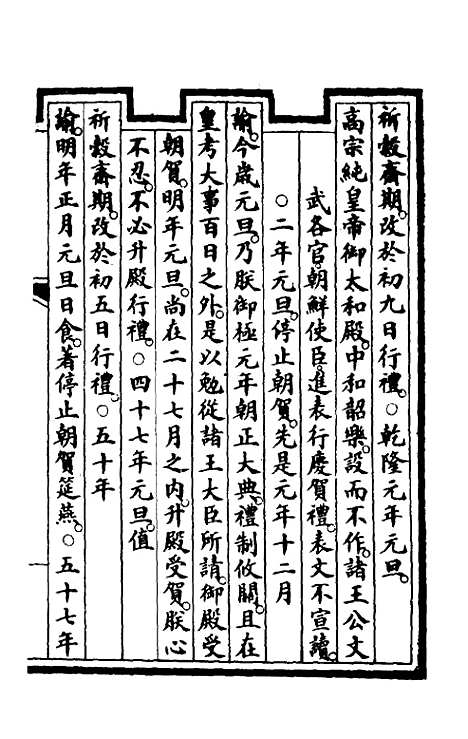 祈穀齋期。改於初九日行禮。○乾隆元年元旦。
高宗純皇帝御太和殿。中和韶樂。設而不作。諸王公文
武各官。朝鮮使臣。進表行慶賀禮。表文不宣讀。
○二年元旦。停止朝賀。先是元年十二月
諭。今歲元旦。乃朕御極元年朝正大典。禮制攸關。且在
皇考大事百日之外。是以勉從諸王大臣所請。御殿受
朝賀。明年元旦。尚在二十七月之內。升殿受賀。朕心
不忍。不必升殿行禮。○四十七年元旦。值
祈穀齋期。改於初五日行禮。○五十年
諭。明年正月元旦日食。著停止朝賀筵燕。○五十七年